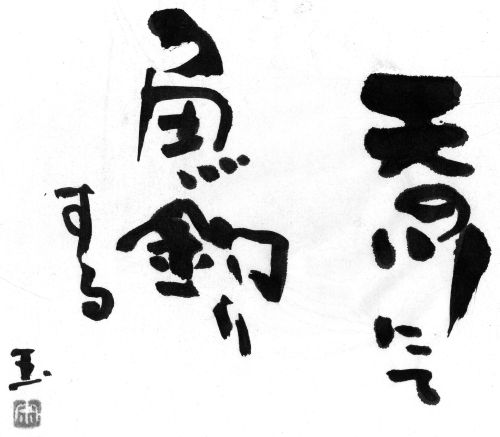 天の川にて
魚釣り
する
玉